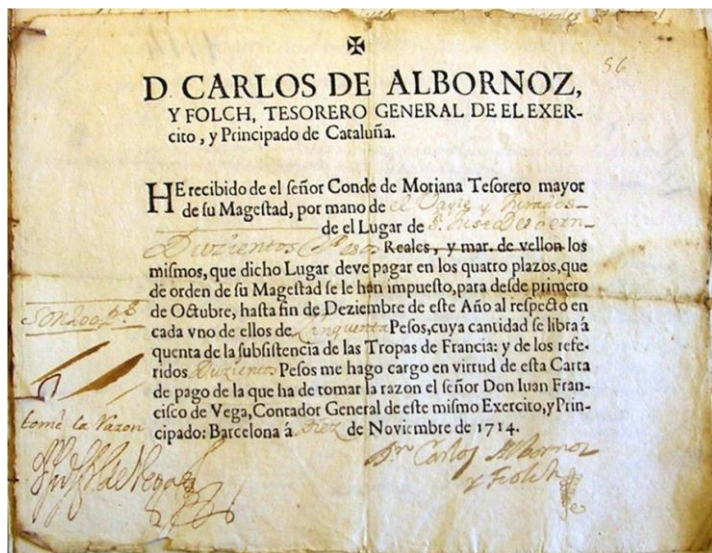 ✠
56
D. CARLOS DE ALBORNOZ,
Y FOLCH, TESORERO GENERAL DE EL EXER-
cito, y Principado de Cataluña.
HE recibido de el señor Conde de Moriana Tesorero mayor
de su Magestad, por mano de el Bayle y Jurados
de el Lugar de
Duzientos Pesos Reales, y mar. de vellon los
mismos, que dicho Lugar deve pagar en los quatro plazos, que
de orden de su Magestad se le han impuesto, para desde primero
de Octubre, hasta fin de Deziembre de este Año al respecto en
cada vno de ellos de Cinquenta Pesos, cuya cantidad se libra à
quenta de la subsistencia de las Tropas de Francia: y de los refe-
ridos Duzientos Pesos me hago cargo en virtud de esta Carta
de pago de la que ha de tomar la razon el señor Don Iuan Fran-
cisco de Vega, Contador General de este mismo Exercito, y Prin-
cipado: Barcelona à Diez de Noviembre de 1714.
Son 200 ps
tomè la Razon
Dn Carlos Albornoz
y Folch